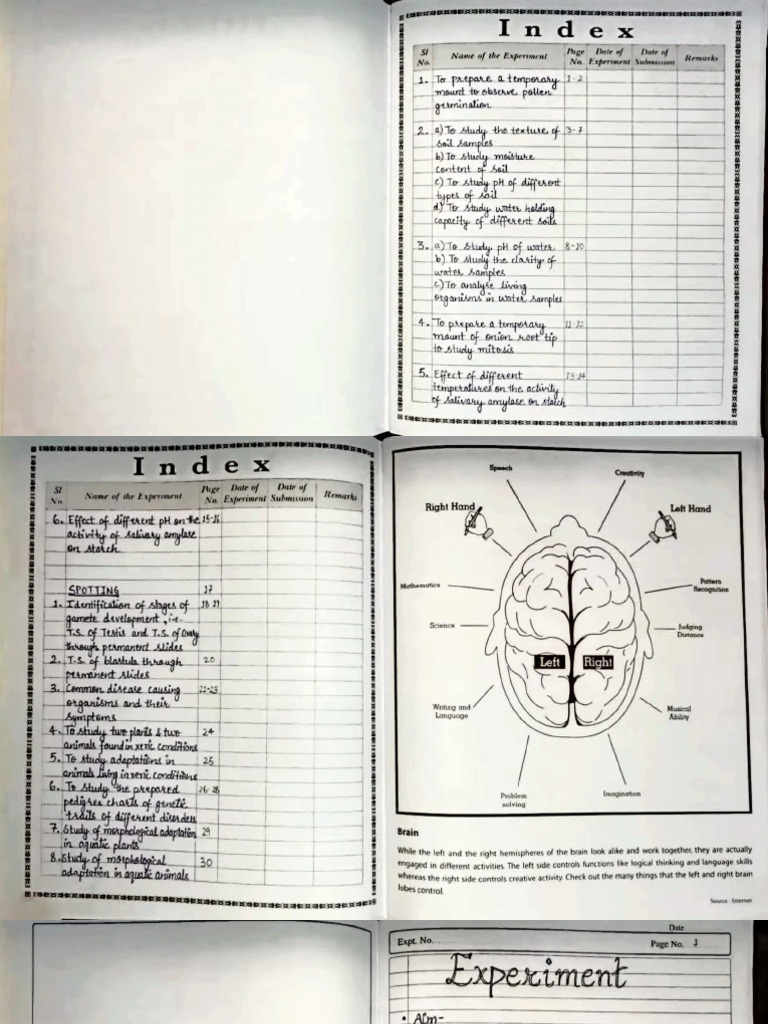 Index
Sl No. Name of the Experiment Page No. Date of Experiment Date of Submission Remarks
1. To prepare a temporary 1-2
mount to observe pollen
germination
2. a) To study the texture of 3-7
soil samples
b) To study moisture
content of soil
c) To study pH of different
types of soil
d) To study water holding
capacity of different soils
3. a) To study pH of water 8-10
b) To study the clarity of
water samples
c) To analyse living
organisms in water samples
4. To prepare a temporary 11-12
mount of onion root tip
to study mitosis
5. Effect of different 13-14
temperatures on the activity
of salivary amylase on starch
Index
Sl No. Name of the Experiment Page No. Date of Experiment Date of Submission Remarks
6. Effect of different pH on the 15-16
activity of salivary amylase
on starch
SPOTTING 17
1. Identification of stages of 18-19
gamete development, i.e.
T.S. of Testis and T.S. of Ovary
through permanent slides
2. T.S. of blastula through 20
permanent slides
3. Common disease causing 21-23
organisms and their
symptoms
4. To study two plants & two 24
animals found in xeric conditions
5. To study adaptations in 25
animals living in xeric conditions
6. To study the prepared 26-28
pedigree charts of genetic
traits of different disorders
7. Study of morphological adaptation 29
in aquatic plants
8. Study of morphological 30
adaptation in aquatic animals
Speech
Creativity
Right Hand
Left Hand
Mathematics
Pattern
Recognition
Science
Judging
Distance
Left
Right
Writing and
Language
Musical
Ability
Problem
solving
Imagination
Brain
While the left and the right hemispheres of the brain look alike and work together, they are actually
engaged in different activities. The left side controls functions like logical thinking and language skills
whereas the right side controls creative activity. Check out the many things that the left and right brain
lobes control.
Source: Internet
Date
Expt. No.
Page No. 1
Experiment
• Aim-